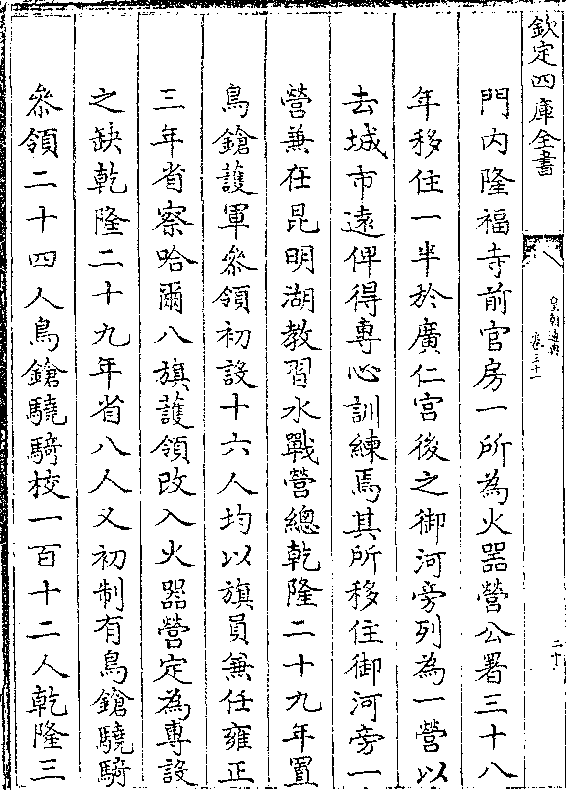 欽定四庫全書
皇朝通典 卷三十一
二十
門内隆福寺前官房一所為火器營公署三十八
年移住一半於廣仁宮後之御河旁列為一營以
去城市遠俾得專心訓練焉其所移住御河旁一
營兼在昆明湖教習水戰營總乾隆二十九年置
鳥鎗護軍叅領初設十六人均以旗員兼任雍正
三年省察哈爾八旗護領改入火器營定為專設
之缺乾隆二十九年省八人又初制有鳥鎗驍騎
叅領二十四人鳥鎗驍騎校一百十二人乾隆三